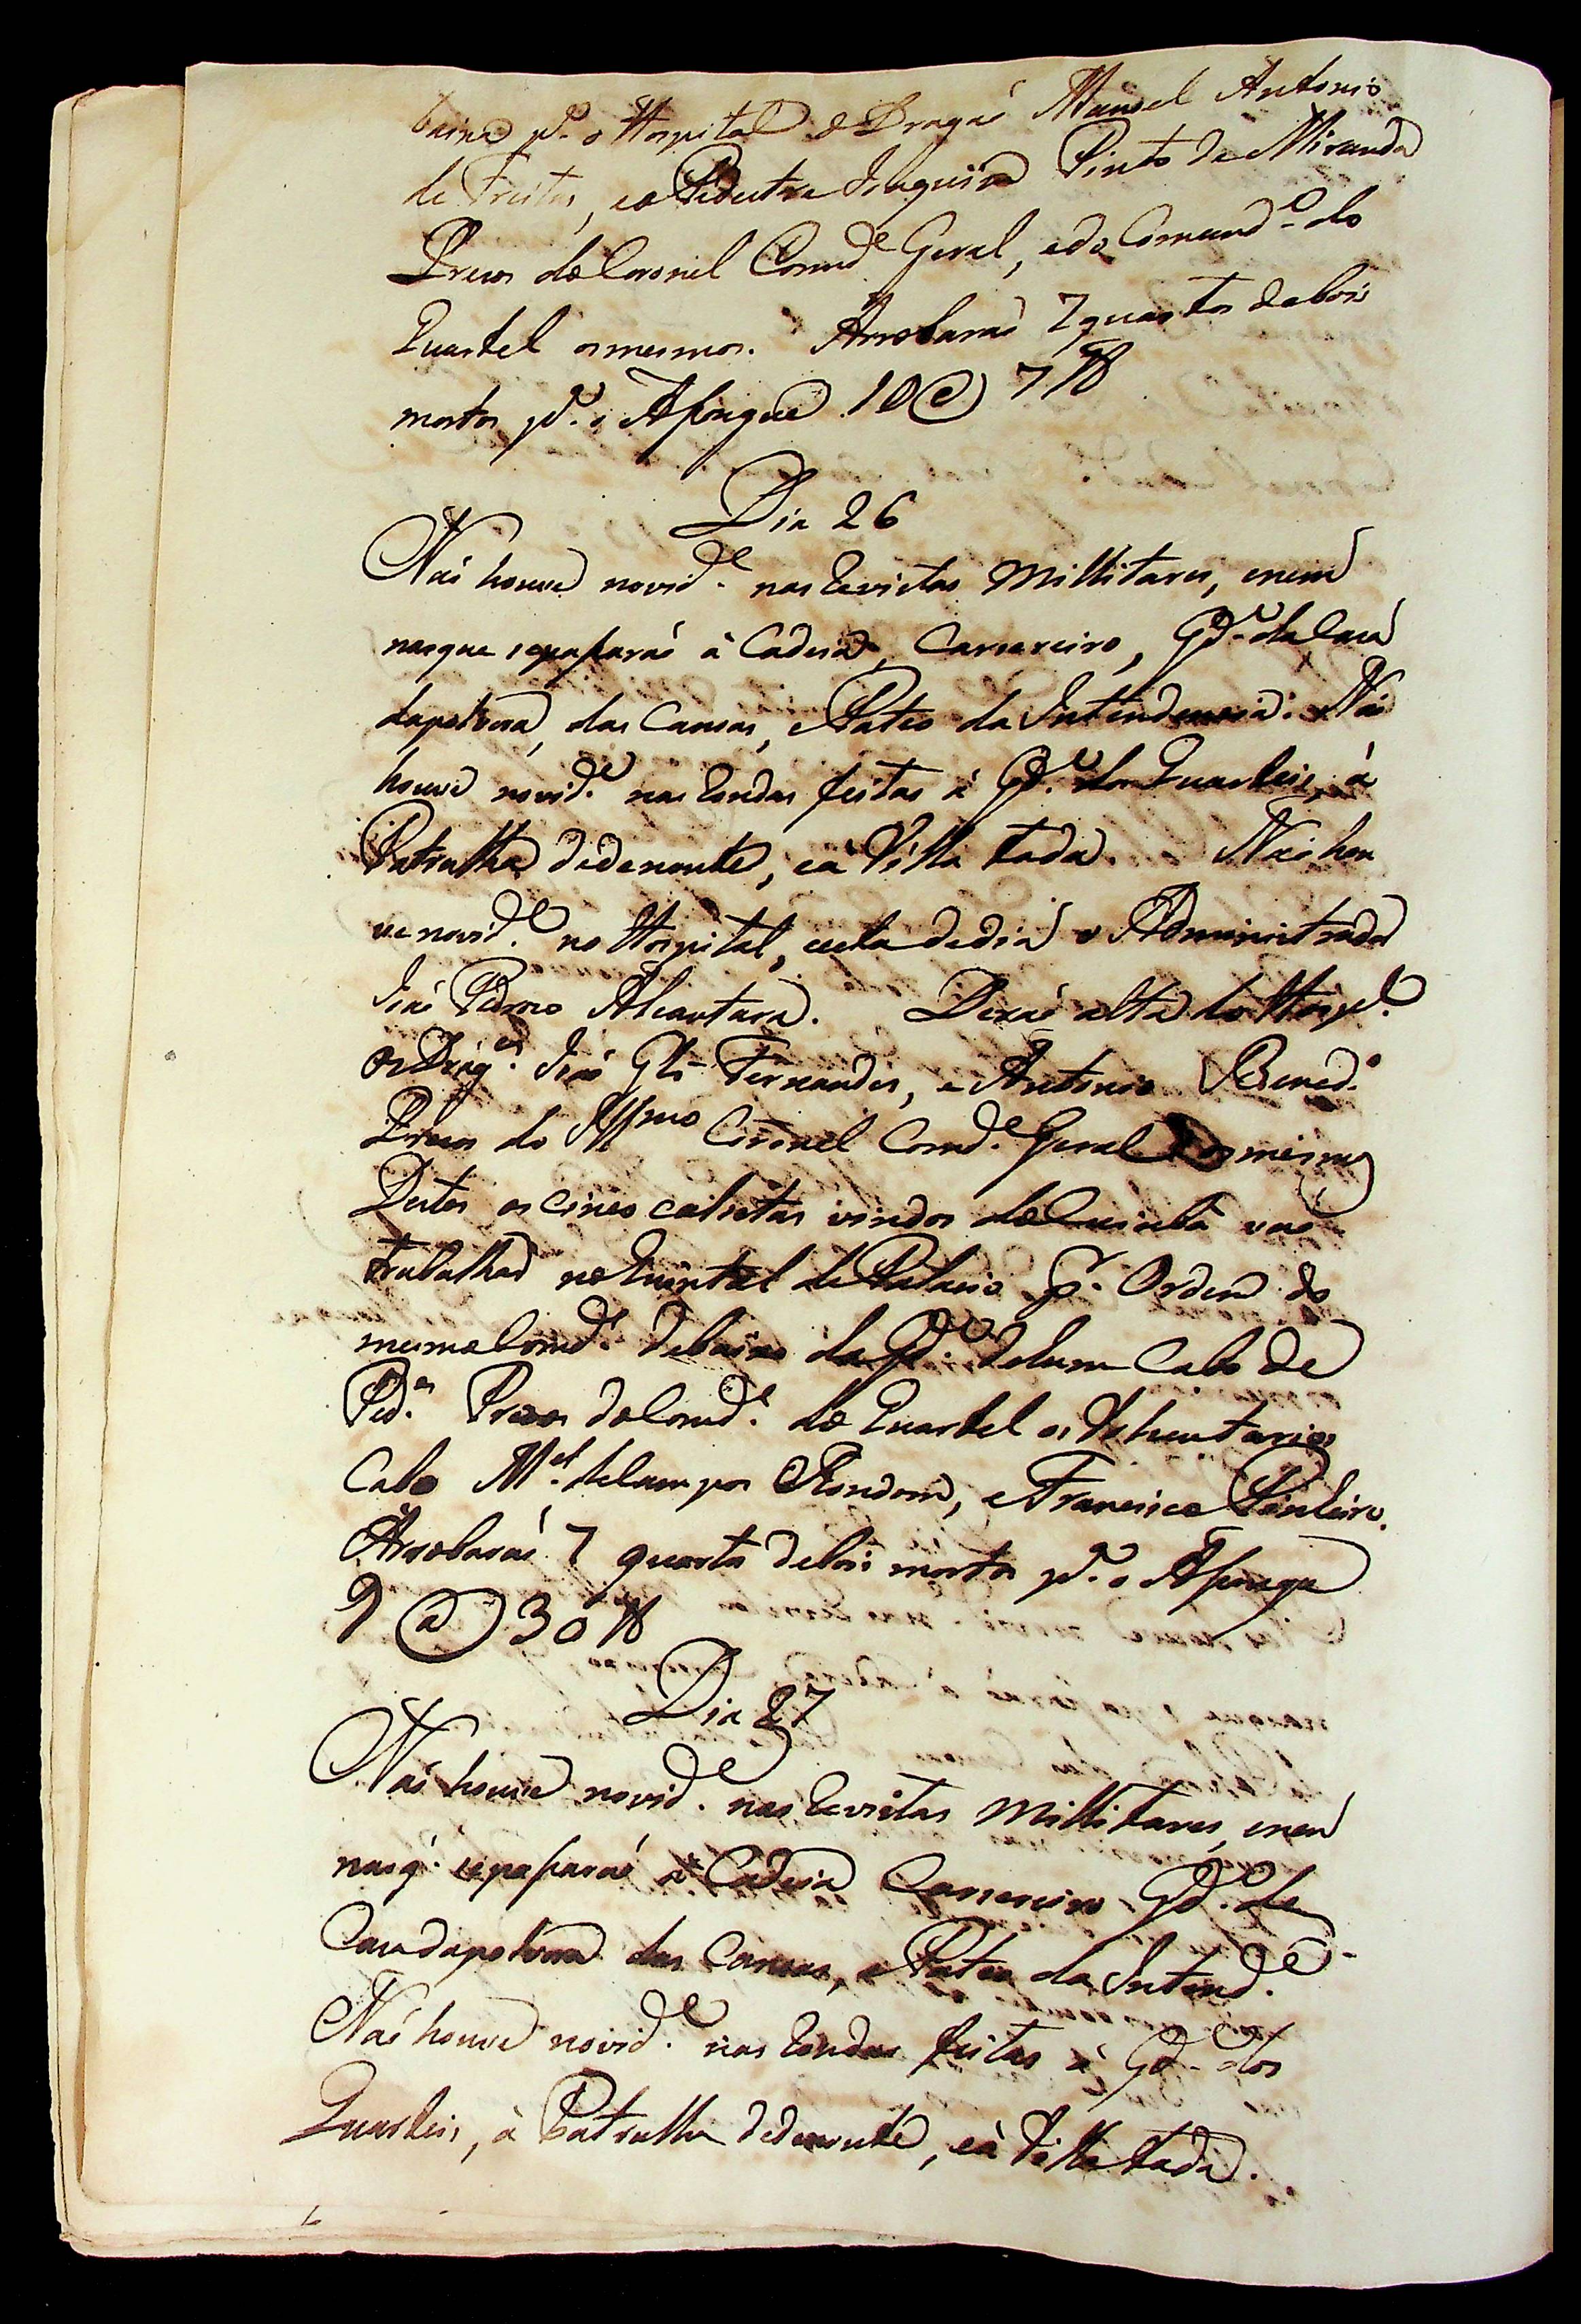 baixa pª. o Hospital o Dragaõ Manoel Antonio
de Freitas, eo Pedestre Pinto de Miranda
Prezos do Coronel Comdᵉ Geral, e do Comandᵉ. do
Quartel os mesmos. Arrobaraõ 7 quartos de boi
mortos pª. o Asougue 10 @ 7 ℔
Dia 26
Naõ houve novidᵉ. nas Revistas Millitares, enem
nasque sepasaraõ à Cadeia, Carsereiro, Gdª. da Caza
dapolvora, das Canoas, e Pateo da Intendencia. Naõ
houve novidᵉ. nas Rondas feitas à Gdª. dos Quarteis, à
Patrulha dedenoute, eà Villa tada. Naõ hou
ve novidᵉ. no Hospital, eesta dedia o Administrador
Joaõ Pedro Alcantara. Deraõ alta do Hospˡ.
os Dragᵉˢ. Joaõ Glz Fernandes, e Antonio Benedᵒ.
Prezos do Illmo Coronel Comdᵉ. Geral os mesmos
Destes os cinco calcetas vindos do Cuiabá vaõ
trabalhar no Quintal do Palacio pʳ. Ordem do
mesmo Comdᵉ. debaixo da Gdª. de hum Cabo de
Pedᵉˢ. Prezos do Comdᵉ. do Quartel os Voluntarios
Cabo Mᵉˡ. de Campos Rondom, e Francisco Pinheiro.
Arrobaraõ 7 quartos de boi mortos pª. o Asougue
9 @ 30 ℔
Dia 27
Naõ houve novidᵉ. nas Revistas Millitares, enem
nasq̃. sepasaraõ à Cadeia Carsereiro Gdª. da
Caza dapolvora das Canoas, e Pateo da Intendª.
Naõ houve novidᵉ. nas Rondas feitas à Gdª. dos
Quarteis, à Patrulha dedenoute, eà Villa tada.